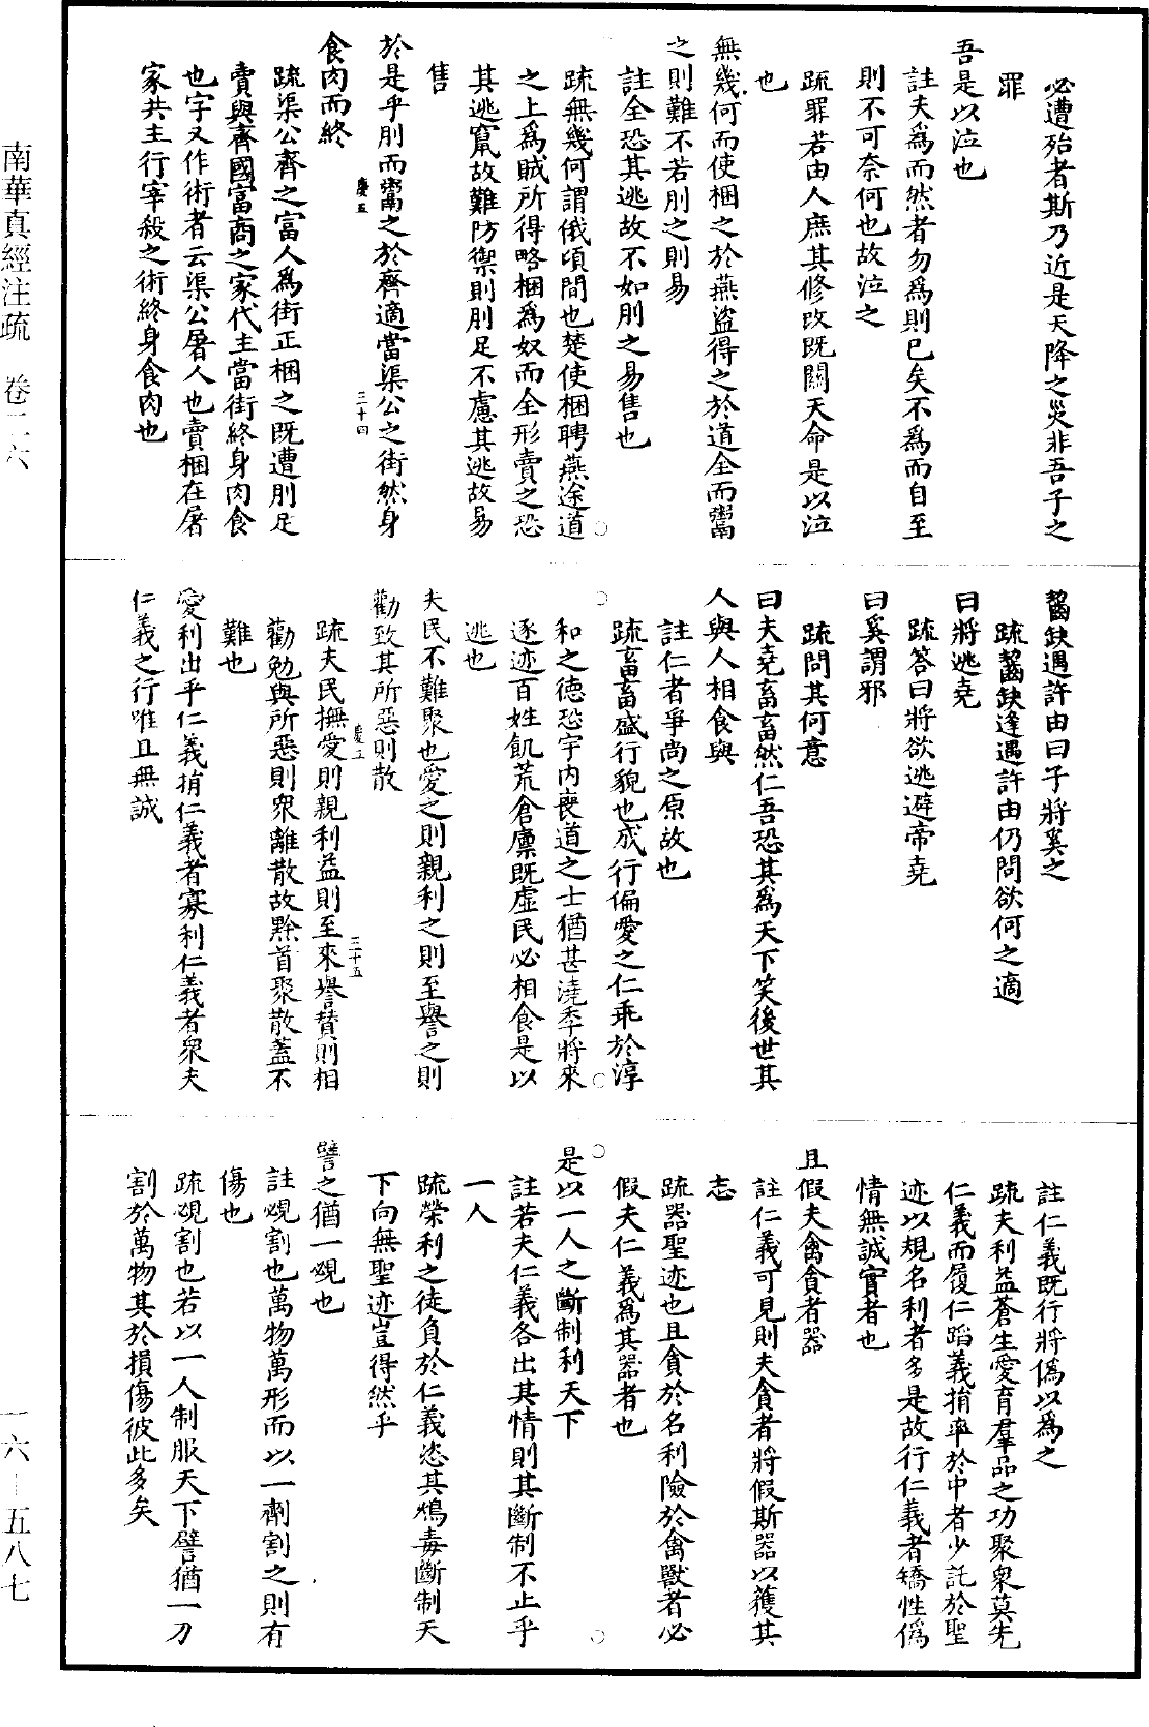 必遭殆者斯乃近是天降之災非吾子之
罪
吾是以泣也
註夫爲而然者勿爲則已矣不爲而自至
則不可奈何也故泣之
疏罪若由人庶其修改既關天命是以泣
也
無幾何而使梱之於燕盜得之於道全而鬻
之則難不若刖之則易
註全恐其逃故不如刖之易售也
疏無幾何謂俄頃間也楚使梱聘燕途道
之上爲賊所得略梱爲奴而全形賣之恐
其逃竄故難防禦則刖足不慮其逃故易
售
於是乎刖而鬻之於齊適當渠公之街然身
慶五
三十四
食肉而終
疏渠公齊之富人爲街正梱之既遭刖足
賣與齊國富商之家代主當街終身肉食
也字又作術者云渠公屠人也賣梱在屠
家共主行宰殺之術終身食肉也
齧缺遇許由曰子將奚之
疏齧缺逢遇許由仍問欲何之適
曰將逃堯
疏答曰將欲逃避帝堯
曰奚謂邪
疏問其何意
曰夫堯畜畜然仁吾恐其爲天下笑後世其
人與人相食與
註仁者爭尚之原故也
疏畜畜盛行貌也成行偏愛之仁乖於淳
和之德恐宇內喪道之士猶甚澆季將來
逐迹百姓飢荒倉廩既虛民必相食是以
逃也
夫民不難聚也愛之則親利之則至譽之則
勸致其所惡則散
慶五
三十五
疏夫民撫愛則親利益則至來譽贊則相
勸勉與所惡則衆離散故黔首聚散蓋不
難也
愛利出乎仁義捐仁義者寡利仁義者衆夫
仁義之行唯且無誠
註仁義既行將僞以爲之
疏夫利益蒼生愛育羣品之功聚衆莫先
仁義而履仁蹈義捐率於中者少託於聖
迹以規名利者多是故行仁義者矯性僞
情無誠實者也
且假夫禽貪者器
註仁義可見則夫貪者將假斯器以獲其
志
疏器聖迹也且貪於名利險於禽獸者必
假夫仁義爲其器者也
是以一人之斷制利天下
註若夫仁義各出其情則其斷制不止乎
一人
疏榮利之徒負於仁義恣其鴆毒斷制天
下向無聖迹豈得然乎
譬之猶一覕也
註覕割也萬物萬形而以一劑割之則有
傷也
疏覕割也若以一人制服天下譬猶一刀
割於萬物其於損傷彼此多矣
南華真經注疏 卷二六
一六—五八七